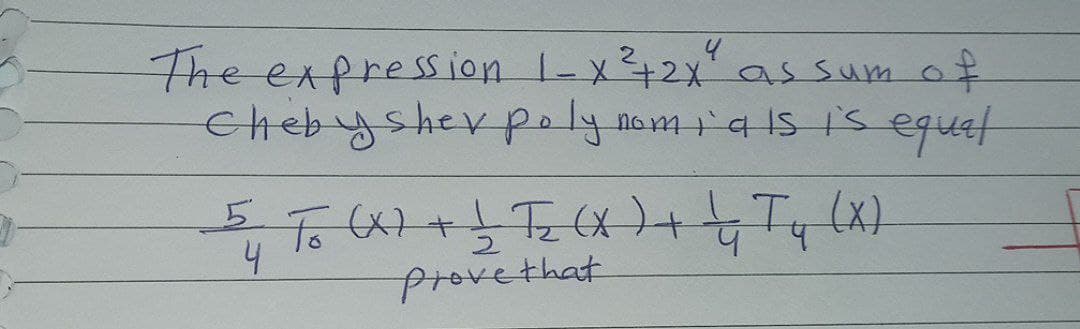 The expression 1-x²+2x⁴ as sum of
chebyshev polynomials is equal
5/4 T₀(x) + 1/2 T₂(x) + 1/4 T₄(x)
prove that